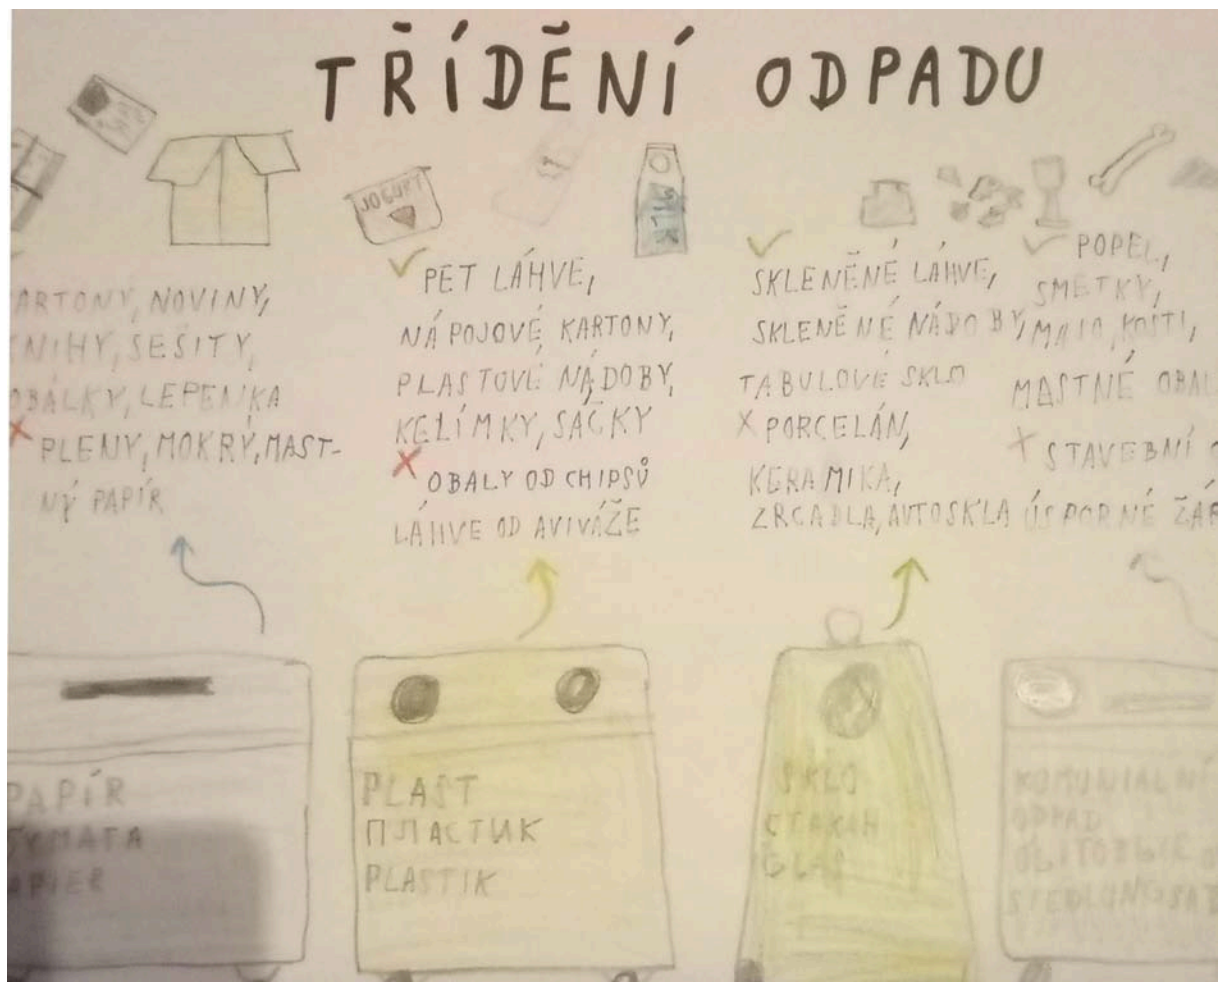 TŘÍDĚNÍ ODPADU
JOGURT
MILK
ARTONY, NOVINY,
NIHY, SEŠITY,
OBÁLKY, LEPENKA
× PLENY, MOKRÝ, MAST-
NÝ PAPÍR
✓ PET LÁHVE,
NÁPOJOVÉ KARTONY,
PLASTOVÉ NÁDOBY,
KELÍMKY, SÁČKY
× OBALY OD CHIPSŮ
LÁHVE OD AVIVÁŽE
✓ SKLENĚNÉ LÁHVE,
SKLENĚNÉ NÁDOBY,
TABULOVÉ SKLO
× PORCELÁN,
KERAMIKA,
ZRCADLA, AUTOSKLA
✓ POPEL,
SMETKY,
KOSTI,
MASTNÉ OBAL
× STAVEBNÍ
ÚSPORNÉ ŽÁR
PAPÍR
УМАГА
APIER
PLAST
ПЛАСТИК
PLASTIK
SKLO
СТАКАН
GLAS
KOMUNIALNÍ
ODPAD